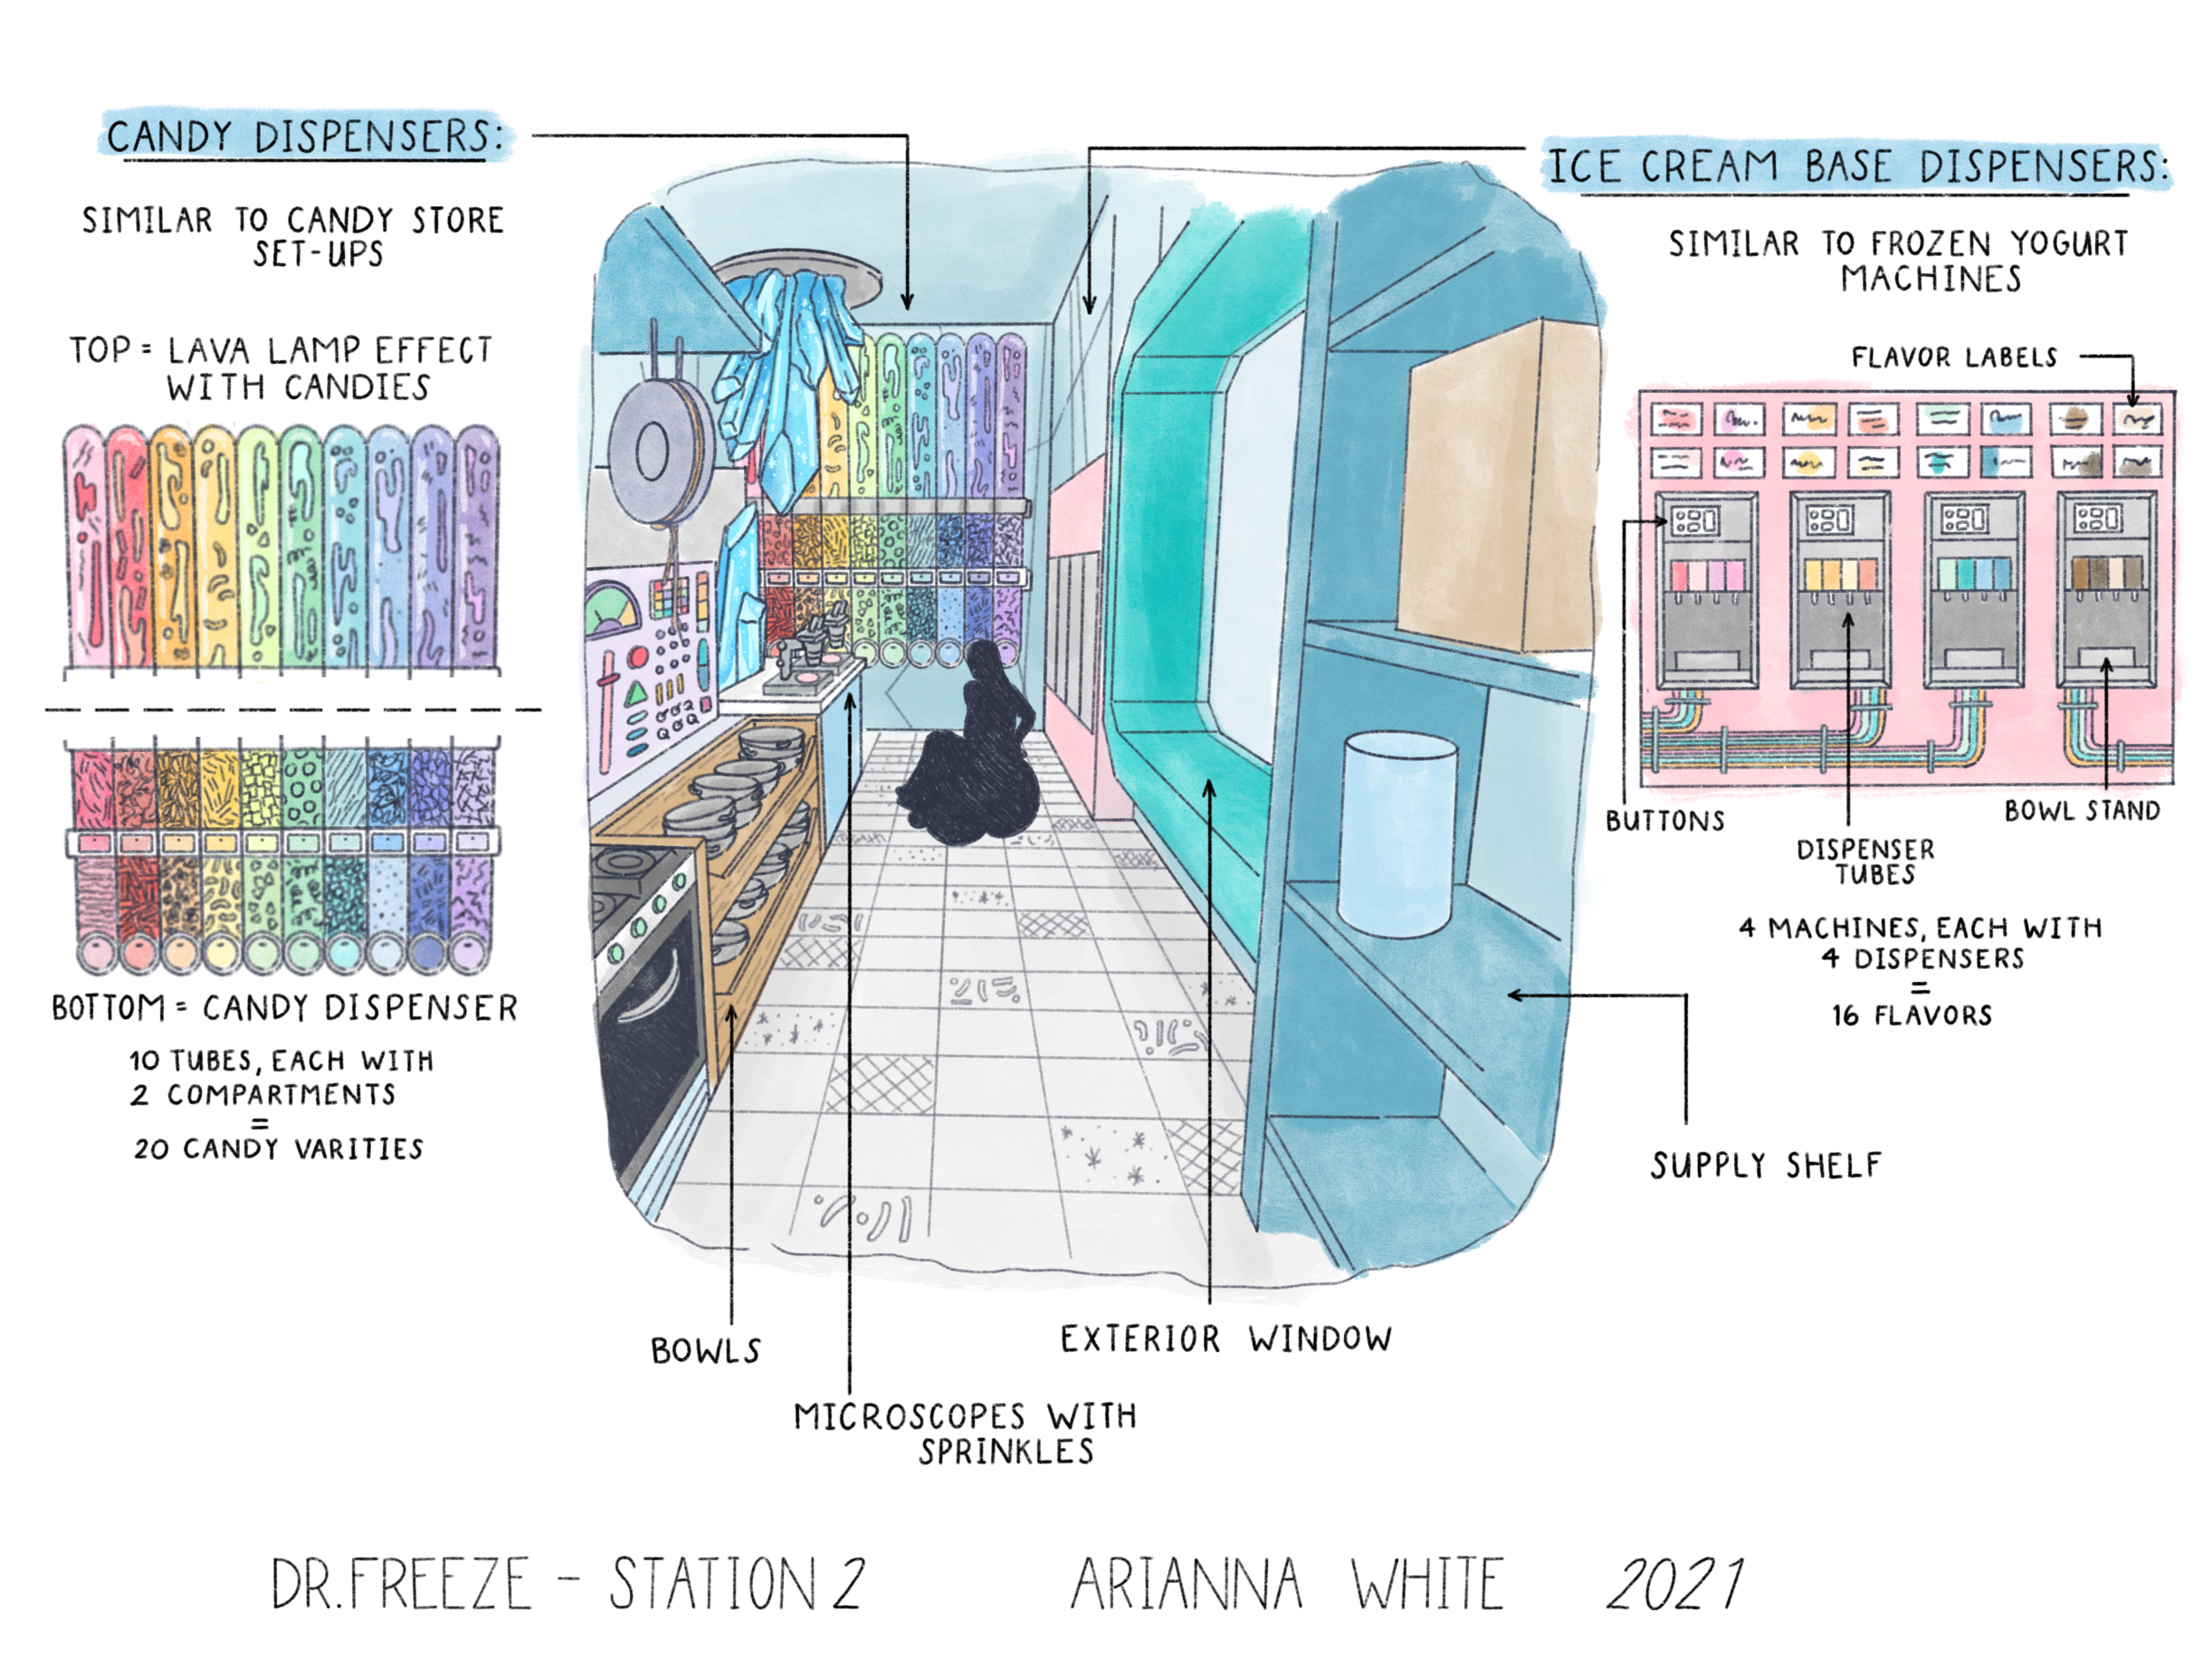 CANDY DISPENSERS:
SIMILAR TO CANDY STORE
SET-UPS
TOP = LAVA LAMP EFFECT
WITH CANDIES
BOTTOM = CANDY DISPENSER
10 TUBES, EACH WITH
2 COMPARTMENTS
=
20 CANDY VARITIES
ICE CREAM BASE DISPENSERS:
SIMILAR TO FROZEN YOGURT
MACHINES
FLAVOR LABELS
BUTTONS
DISPENSER
TUBES
BOWL STAND
4 MACHINES, EACH WITH
4 DISPENSERS
=
16 FLAVORS
SUPPLY SHELF
BOWLS
EXTERIOR WINDOW
MICROSCOPES WITH
SPRINKLES
DR. FREEZE - STATION 2
ARIANNA WHITE 2021